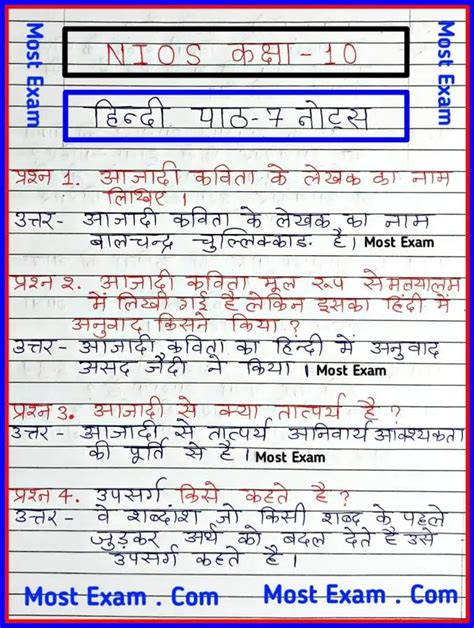 Most Exam
Most Exam
NIOS कक्षा-10
हिन्दी पाठ-7 नोट्स
प्रश्न 1. आजादी कविता के लेखक का नाम
लिखिए।
उत्तर- आजादी कविता के लेखक का नाम
बालचन्द्र चुल्लिक्काड है। Most Exam
प्रश्न 2. आजादी कविता मूल रूप से मलयालम
में लिखी गई है लेकिन इसका हिंदी में
अनुवाद किसने किया?
उत्तर- आजादी कविता का हिन्दी में अनुवाद
असद जैदी ने किया। Most Exam
प्रश्न 3. आजादी से क्या तात्पर्य है?
उत्तर- आजादी से तात्पर्य अनिवार्य आवश्यकता
की पूर्ति से है। Most Exam
प्रश्न 4. उपसर्ग किसे कहते है?
उत्तर- वे शब्दांश जो किसी शब्द के पहले
जुड़कर अर्थ को बदल देते है उसे
उपसर्ग कहते है।
Most Exam . Com Most Exam . Com